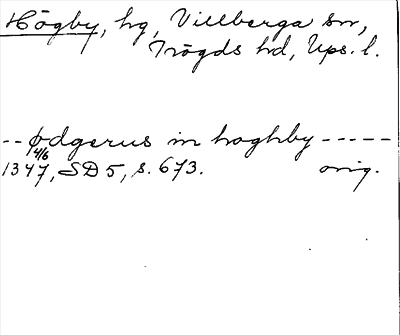 Högby, hg, Villberga sn,
Trögds hd, Ups. l.
-- ødgerus in hoghby -----
1347 4/6, SD 5, s. 673. orig.